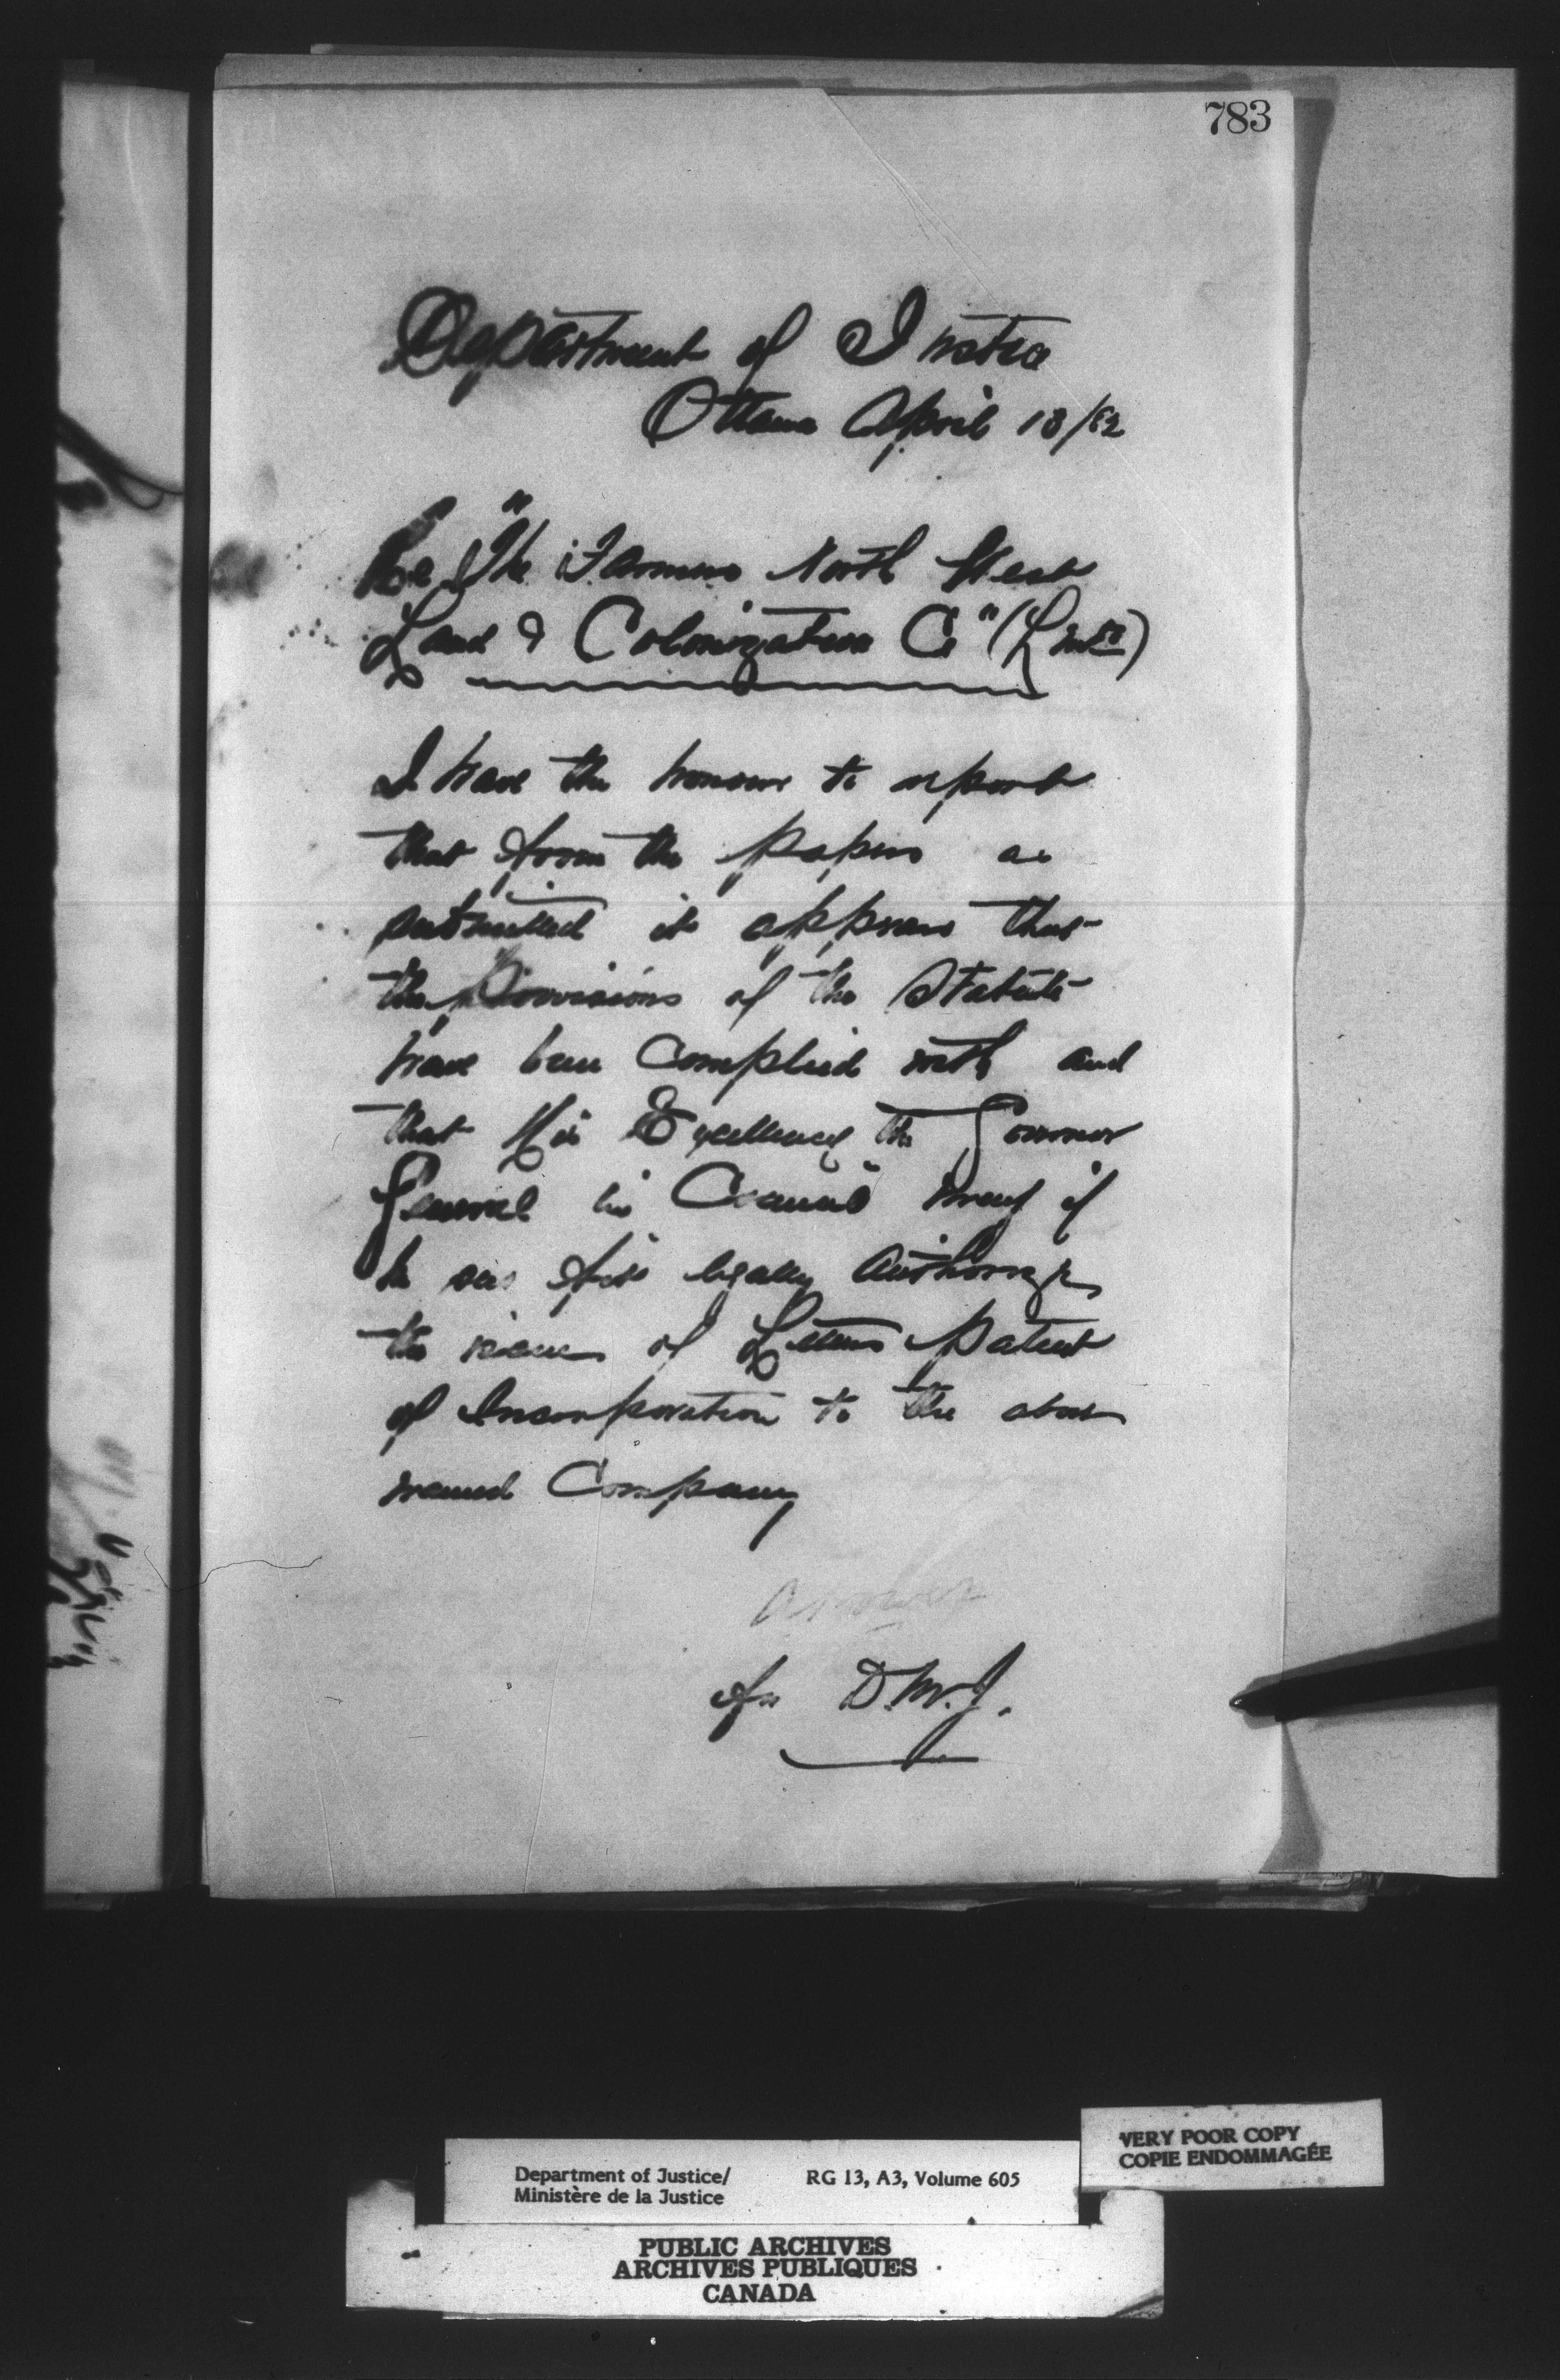 783
Department of Justice
Ottawa April 18/82
Re "The Farmers North West
Land & Colonization Co" (Limtd)
I have the honour to report
that from the papers as
submitted it appears that
the provisions of the Statute
have been complied with and
that His Excellency the Governor
General in Council may if
he sees fit legally authorize
the issue of Letters Patent
of Incorporation to the above
named Company
for D.M.J.
VERY POOR COPY
COPIE ENDOMMAGÉE
Department of Justice/ RG 13, A3, Volume 605
Ministère de la Justice
PUBLIC ARCHIVES
ARCHIVES PUBLIQUES
CANADA